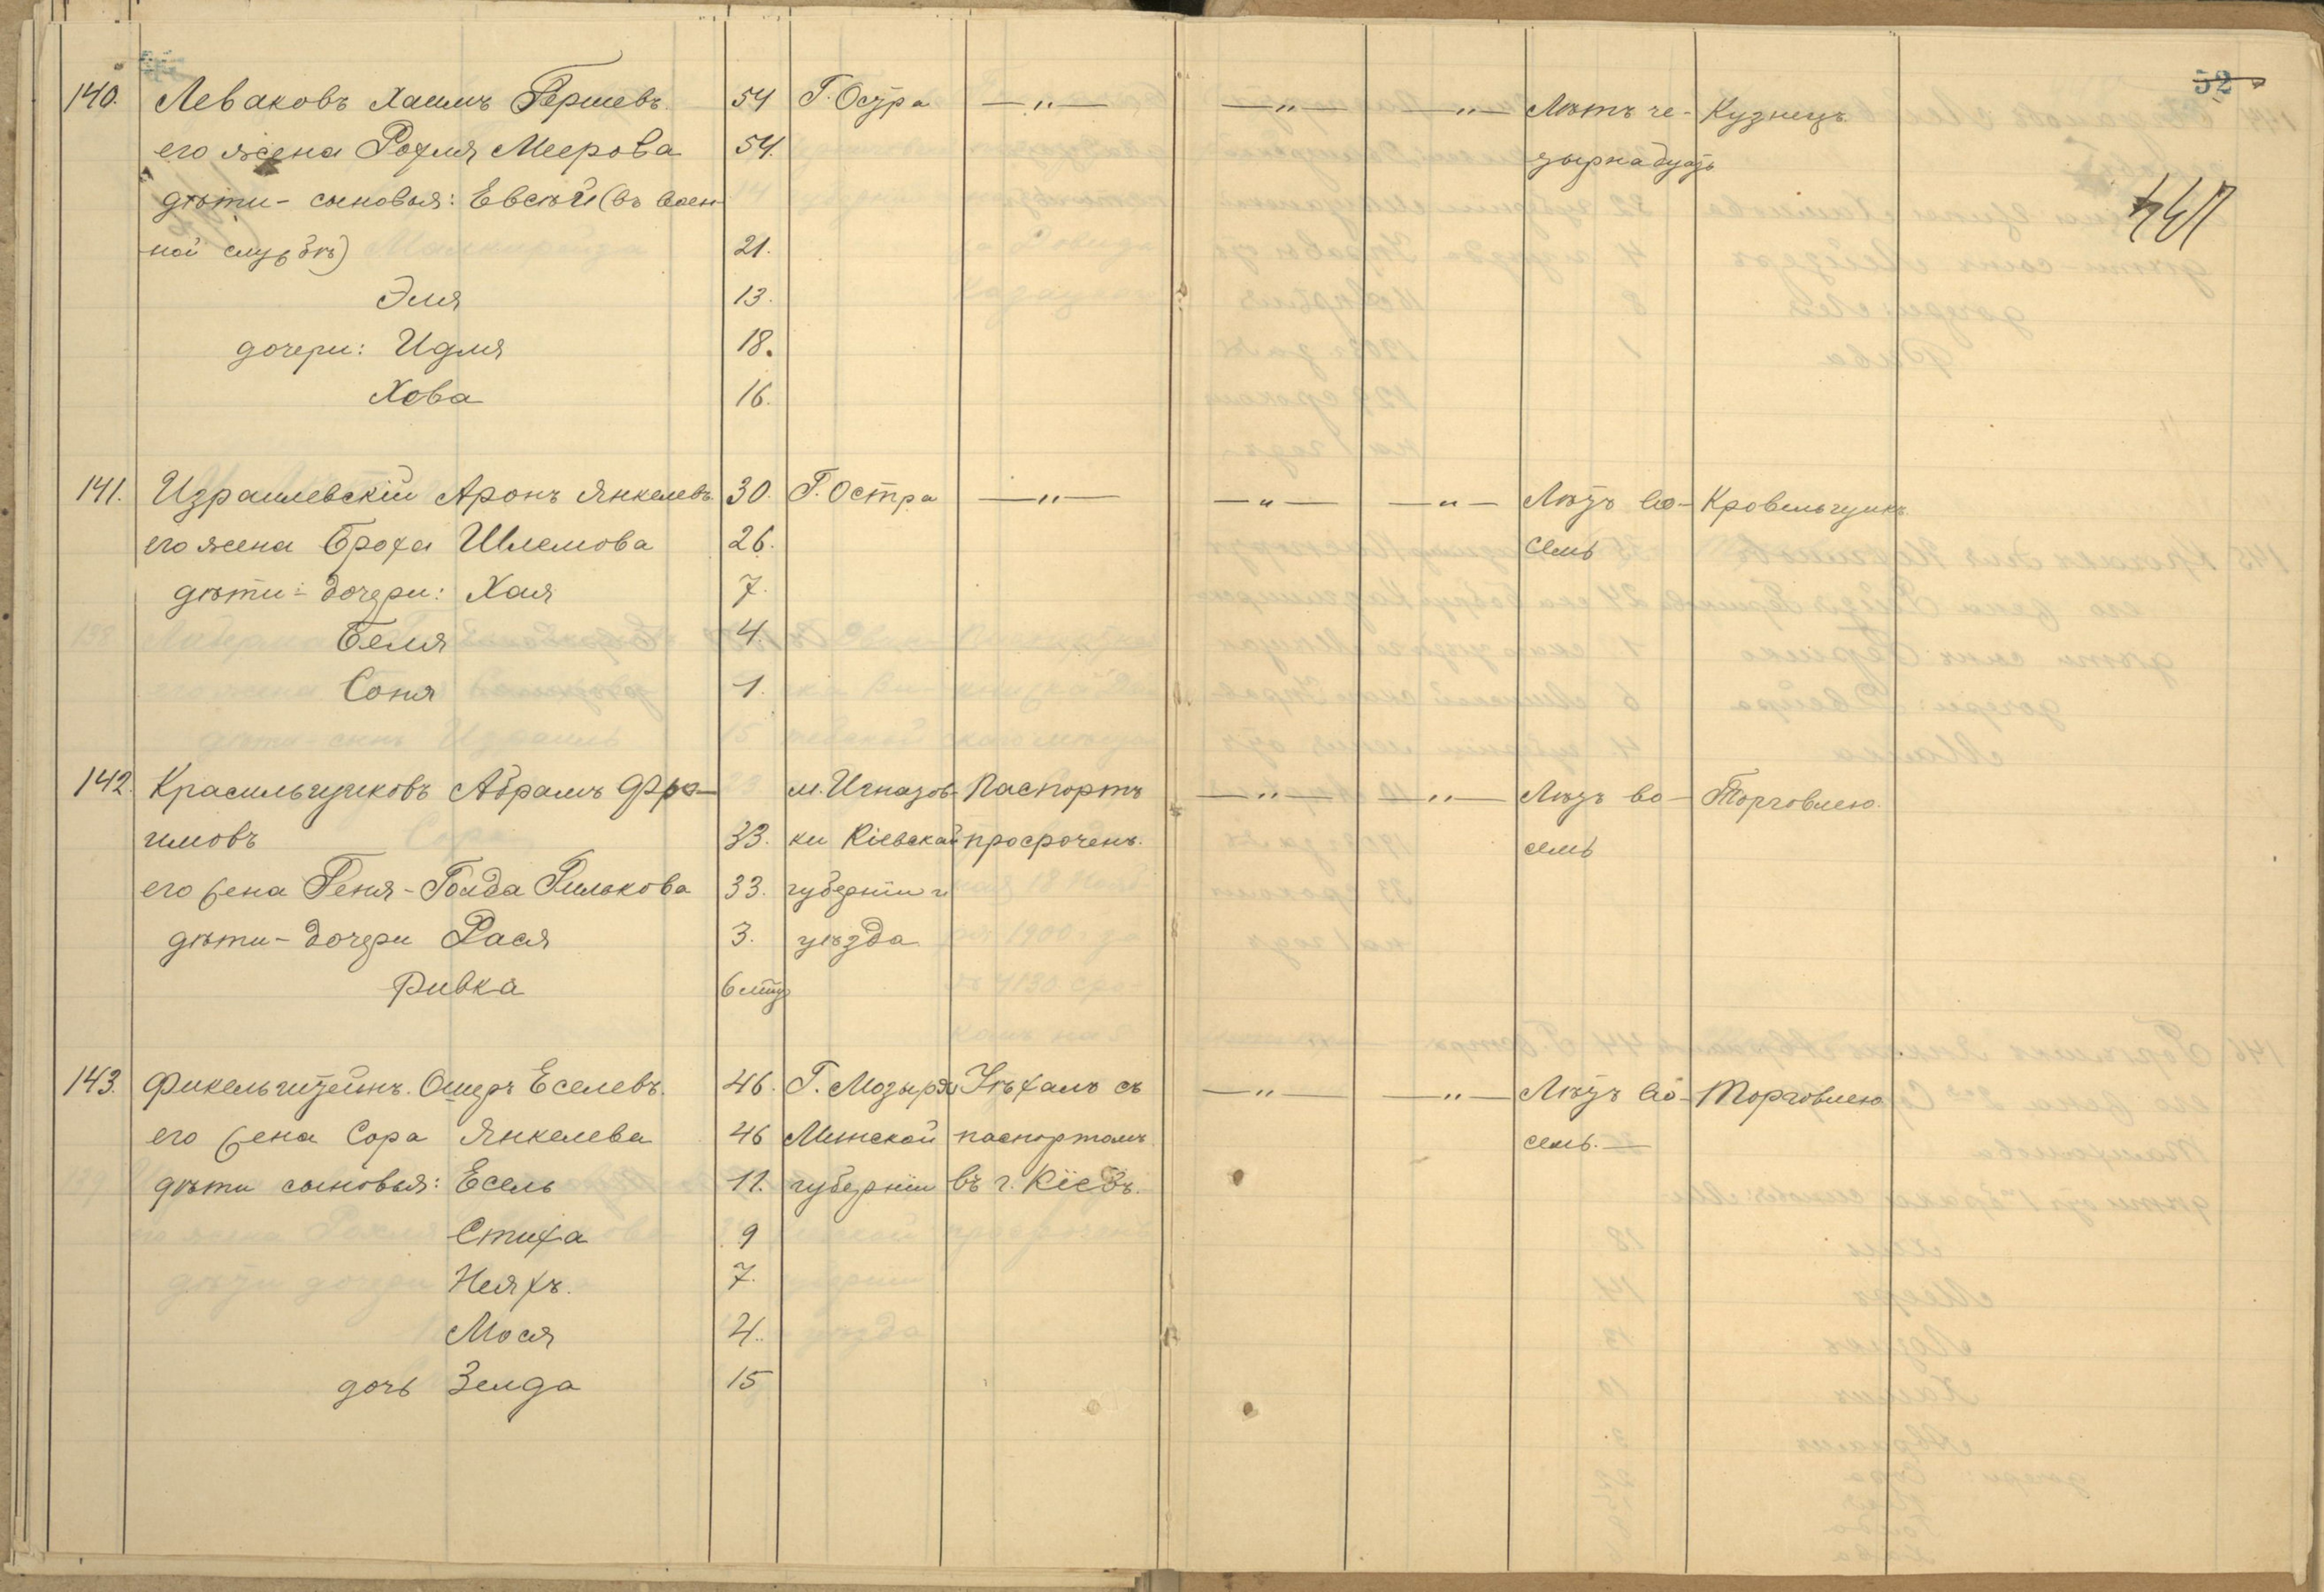 52
140. Леваковъ Хаимъ Гершевъ. 54 Г. Остра —„— —„— —„— Лѣтъ че- Кузнецъ.
его жена Рохля Меерова 54. тырнадцать
дѣти - сыновья: Евсѣй (въ воен-
ной службѣ) 21.
Эля 13.
дочери: Идля 18.
Хова 16.
141. Израилевскій Аронъ Янкелевъ 30. Г. Остра —„— —„— —„— Лѣтъ во- Кровельщикъ.
его жена Броха Шлемова 26. семь
дѣти - дочери: Хая 7.
Беля 4.
Соня 1.
142. Красильщиковъ Абрамъ Фро- м. Игнатов- Паспортъ —„— —„— Лѣтъ во- Торговлею.
имовъ 33. ки Кіевской просроченъ. семь
его жена Геня-Голда Гилькова 33. губерніи и
дѣти - дочери Рася 3. уѣзда
Ривка 6 мѣс
143. Финкельштейнъ Ошеръ Еселевъ. 46. Г. Мозыря Уѣхалъ съ —„— —„— Лѣтъ во- Торговлею
его жена Сора Янкелева 46 Минской паспортомъ семь.
дѣти сыновья: Есель 11. губерніи въ г. Кіевъ.
Стиха 9
Неяхъ. 7.
Мося 4.
дочь Зелда 15